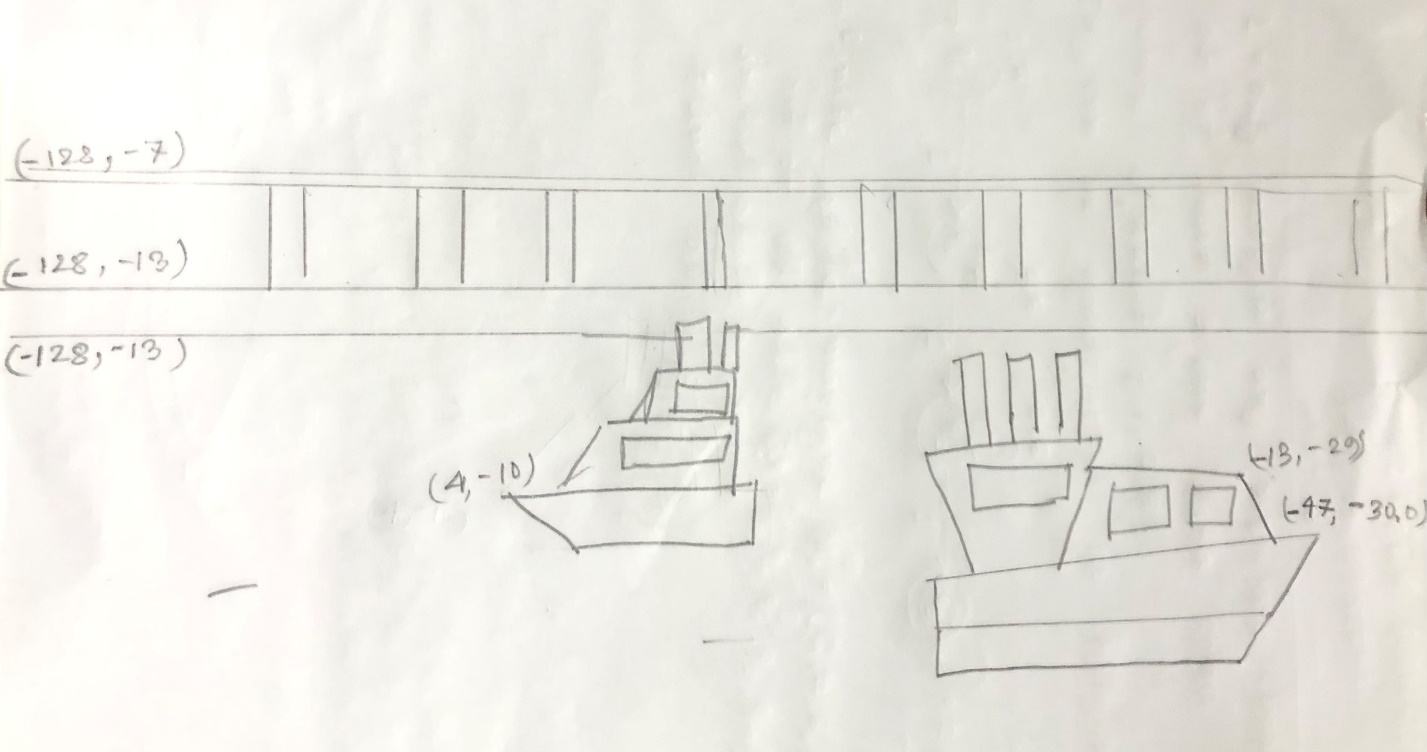 (-128, -7)
(-128, -13)
(-128, -13)
(4, -10)
(-13, -29)
(-47, -30,0)